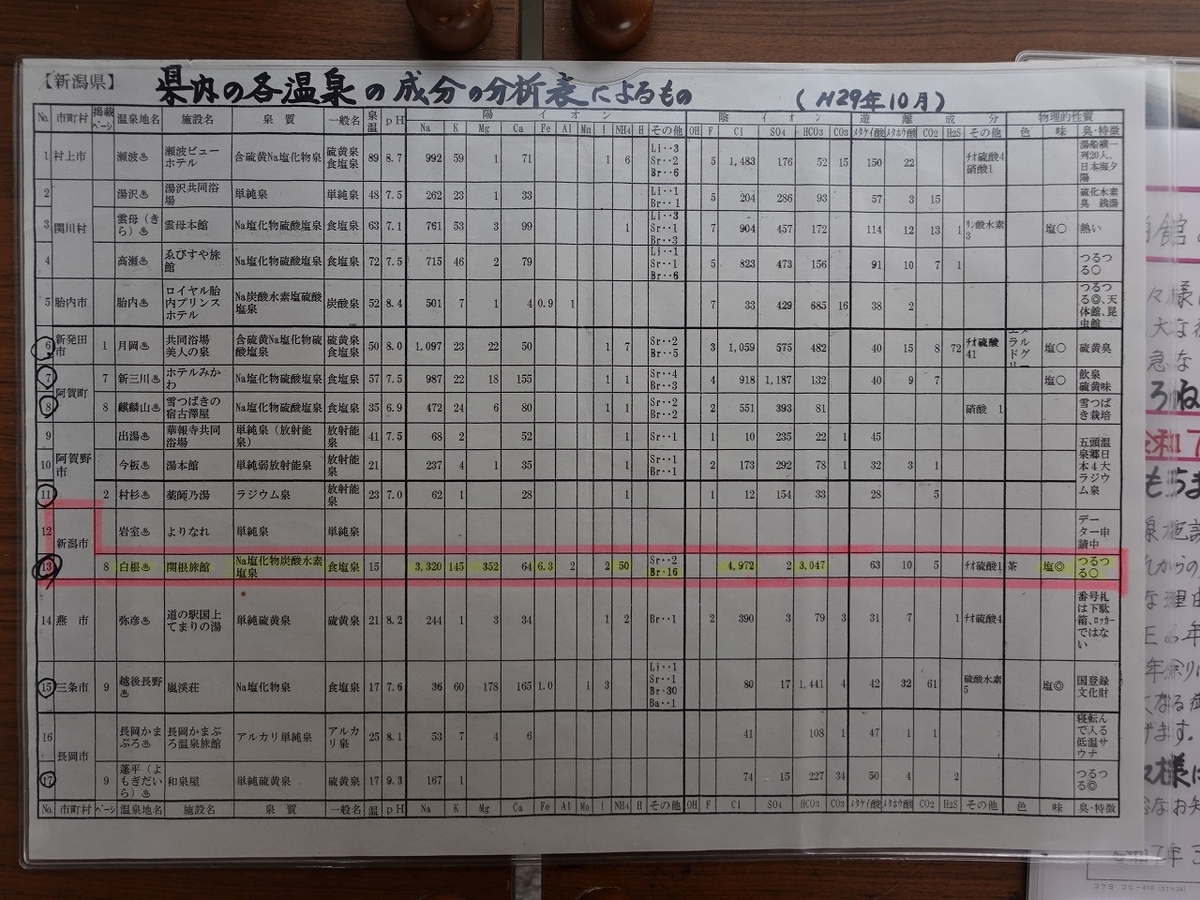 【新潟県】 県内の各温泉の成分の分析表によるもの (H29年10月)
No. 市町村 掲載ページ 温泉地名 施設名 泉質 一般名 泉温 pH 陽イオン 陰イオン 遊離成分 物理的性質
Na K Mg Ca Fe Al Mn l NH4 H その他 OH F Cl SO4 HCO3 CO3 メタケイ酸 メタホウ酸 CO2 H2S その他 色 味 臭・特徴
1 村上市 瀬波♨ 瀬波ビューホテル 含硫黄Na塩化物泉 硫黄泉 食塩泉 89 8.7 992 59 1 71 1 6 Li‥3 Sr‥2 Br‥6 5 1,483 176 52 15 150 22 チオ硫酸4 硝酸1 湯船横一列20人、日本海夕陽
2 関川村 湯沢♨ 湯沢共同浴場 単純泉 単純泉 48 7.5 262 23 1 33 Li‥1 Br‥1 5 204 286 93 57 3 15 硫化水素臭 銭湯
3 雲母(きら)♨ 雲母本館 Na塩化物硫酸塩泉 食塩泉 63 7.1 761 53 3 99 1 Li‥3 Sr‥1 Br‥3 7 904 457 172 114 12 13 1 リン酸水素3 塩〇 熱い
4 高瀬♨ ゑびすや旅館 Na塩化物硫酸塩泉 食塩泉 72 7.5 715 46 2 79 Li‥1 Sr‥1 Br‥6 5 823 473 156 91 10 7 1 つるつる〇
5 胎内市 胎内♨ ロイヤル胎内プリンスホテル Na炭酸水素塩硫酸塩泉 炭酸泉 52 8.4 501 7 1 4 0.9 1 7 33 429 685 16 38 2 つるつる◎、天体館、昆虫館
6 新発田市 1 月岡♨ 共同浴場美人の泉 含硫黄Na塩化物硫酸塩泉 硫黄泉 食塩泉 50 8.0 1,097 23 22 50 1 7 Sr‥2 Br‥5 3 1,059 575 482 40 15 8 72 チオ硫酸41 エメラルドグリ 塩〇 硫黄臭
7 阿賀町 7 新三川♨ ホテルみかわ Na塩化物硫酸塩泉 食塩泉 57 7.5 987 22 18 155 1 1 Sr‥4 Br‥3 4 918 1,187 132 40 9 7 塩〇 飲泉 硫黄味
8 8 麒麟山♨ 雪つばきの宿古澤屋 Na塩化物硫酸塩泉 食塩泉 35 6.9 472 24 6 80 1 1 Sr‥2 Br‥2 2 551 393 81 硝酸 1 雪つばき栽培
9 阿賀野市 出湯♨ 華報寺共同浴場 単純泉(放射能泉) 放射能泉 41 7.5 68 2 52 1 Sr‥1 1 10 235 22 1 45 五頭温泉郷日本4大ラジウム泉
10 今板♨ 湯本館 単純弱放射能泉 放射能泉 21 237 4 1 35 1 Sr‥1 Br‥1 2 173 292 78 1 32 3 1
11 2 村杉♨ 薬師乃湯 ラジウム泉 放射能泉 23 7.0 62 1 28 1 1 12 154 33 28 5
12 新潟市 岩室♨ よりなれ 単純泉 単純泉 データー申請中
13 8 白根♨ 関根旅館 Na塩化物炭酸水素塩泉 食塩泉 15 3,320 145 352 64 6.3 2 2 50 Sr‥2 Br‥16 4,972 2 3,047 63 10 5 チオ硫酸1 茶 塩◎ つるつる〇
14 燕市 弥彦♨ 道の駅国上てまりの湯 単純硫黄泉 硫黄泉 21 8.2 244 1 3 34 1 2 Br‥1 2 390 3 79 3 31 7 1 チオ硫酸4 番号札は下駄箱、ロッカーではない
15 三条市 9 越後長野♨ 嵐渓荘 Na塩化物泉 食塩泉 17 7.6 36 60 178 165 1.0 1 3 Li‥1 Sr‥1 Br‥30 Ba‥1 80 17 1,441 4 42 32 61 硫酸水素5 塩◎ 国登録文化財
16 長岡市 長岡かまぶろ♨ 長岡かまぶろ温泉旅館 アルカリ単純泉 アルカリ泉 25 8.1 53 7 4 6 41 108 1 47 1 1 寝転んで入る低温サウナ
17 9 蓬平(よもぎだいら)♨ 和泉屋 単純硫黄泉 硫黄泉 17 9.3 167 1 74 15 227 34 50 4 2 つるつる◎
No. 市町村 ページ 温泉地名 施設名 泉質 一般名 温 pH Na K Mg Ca Fe Al Mn l NH4 H その他 OH F Cl SO4 HCO3 CO3 メタケイ酸 メタホウ酸 CO2 H2S その他 色 味 臭・特徴